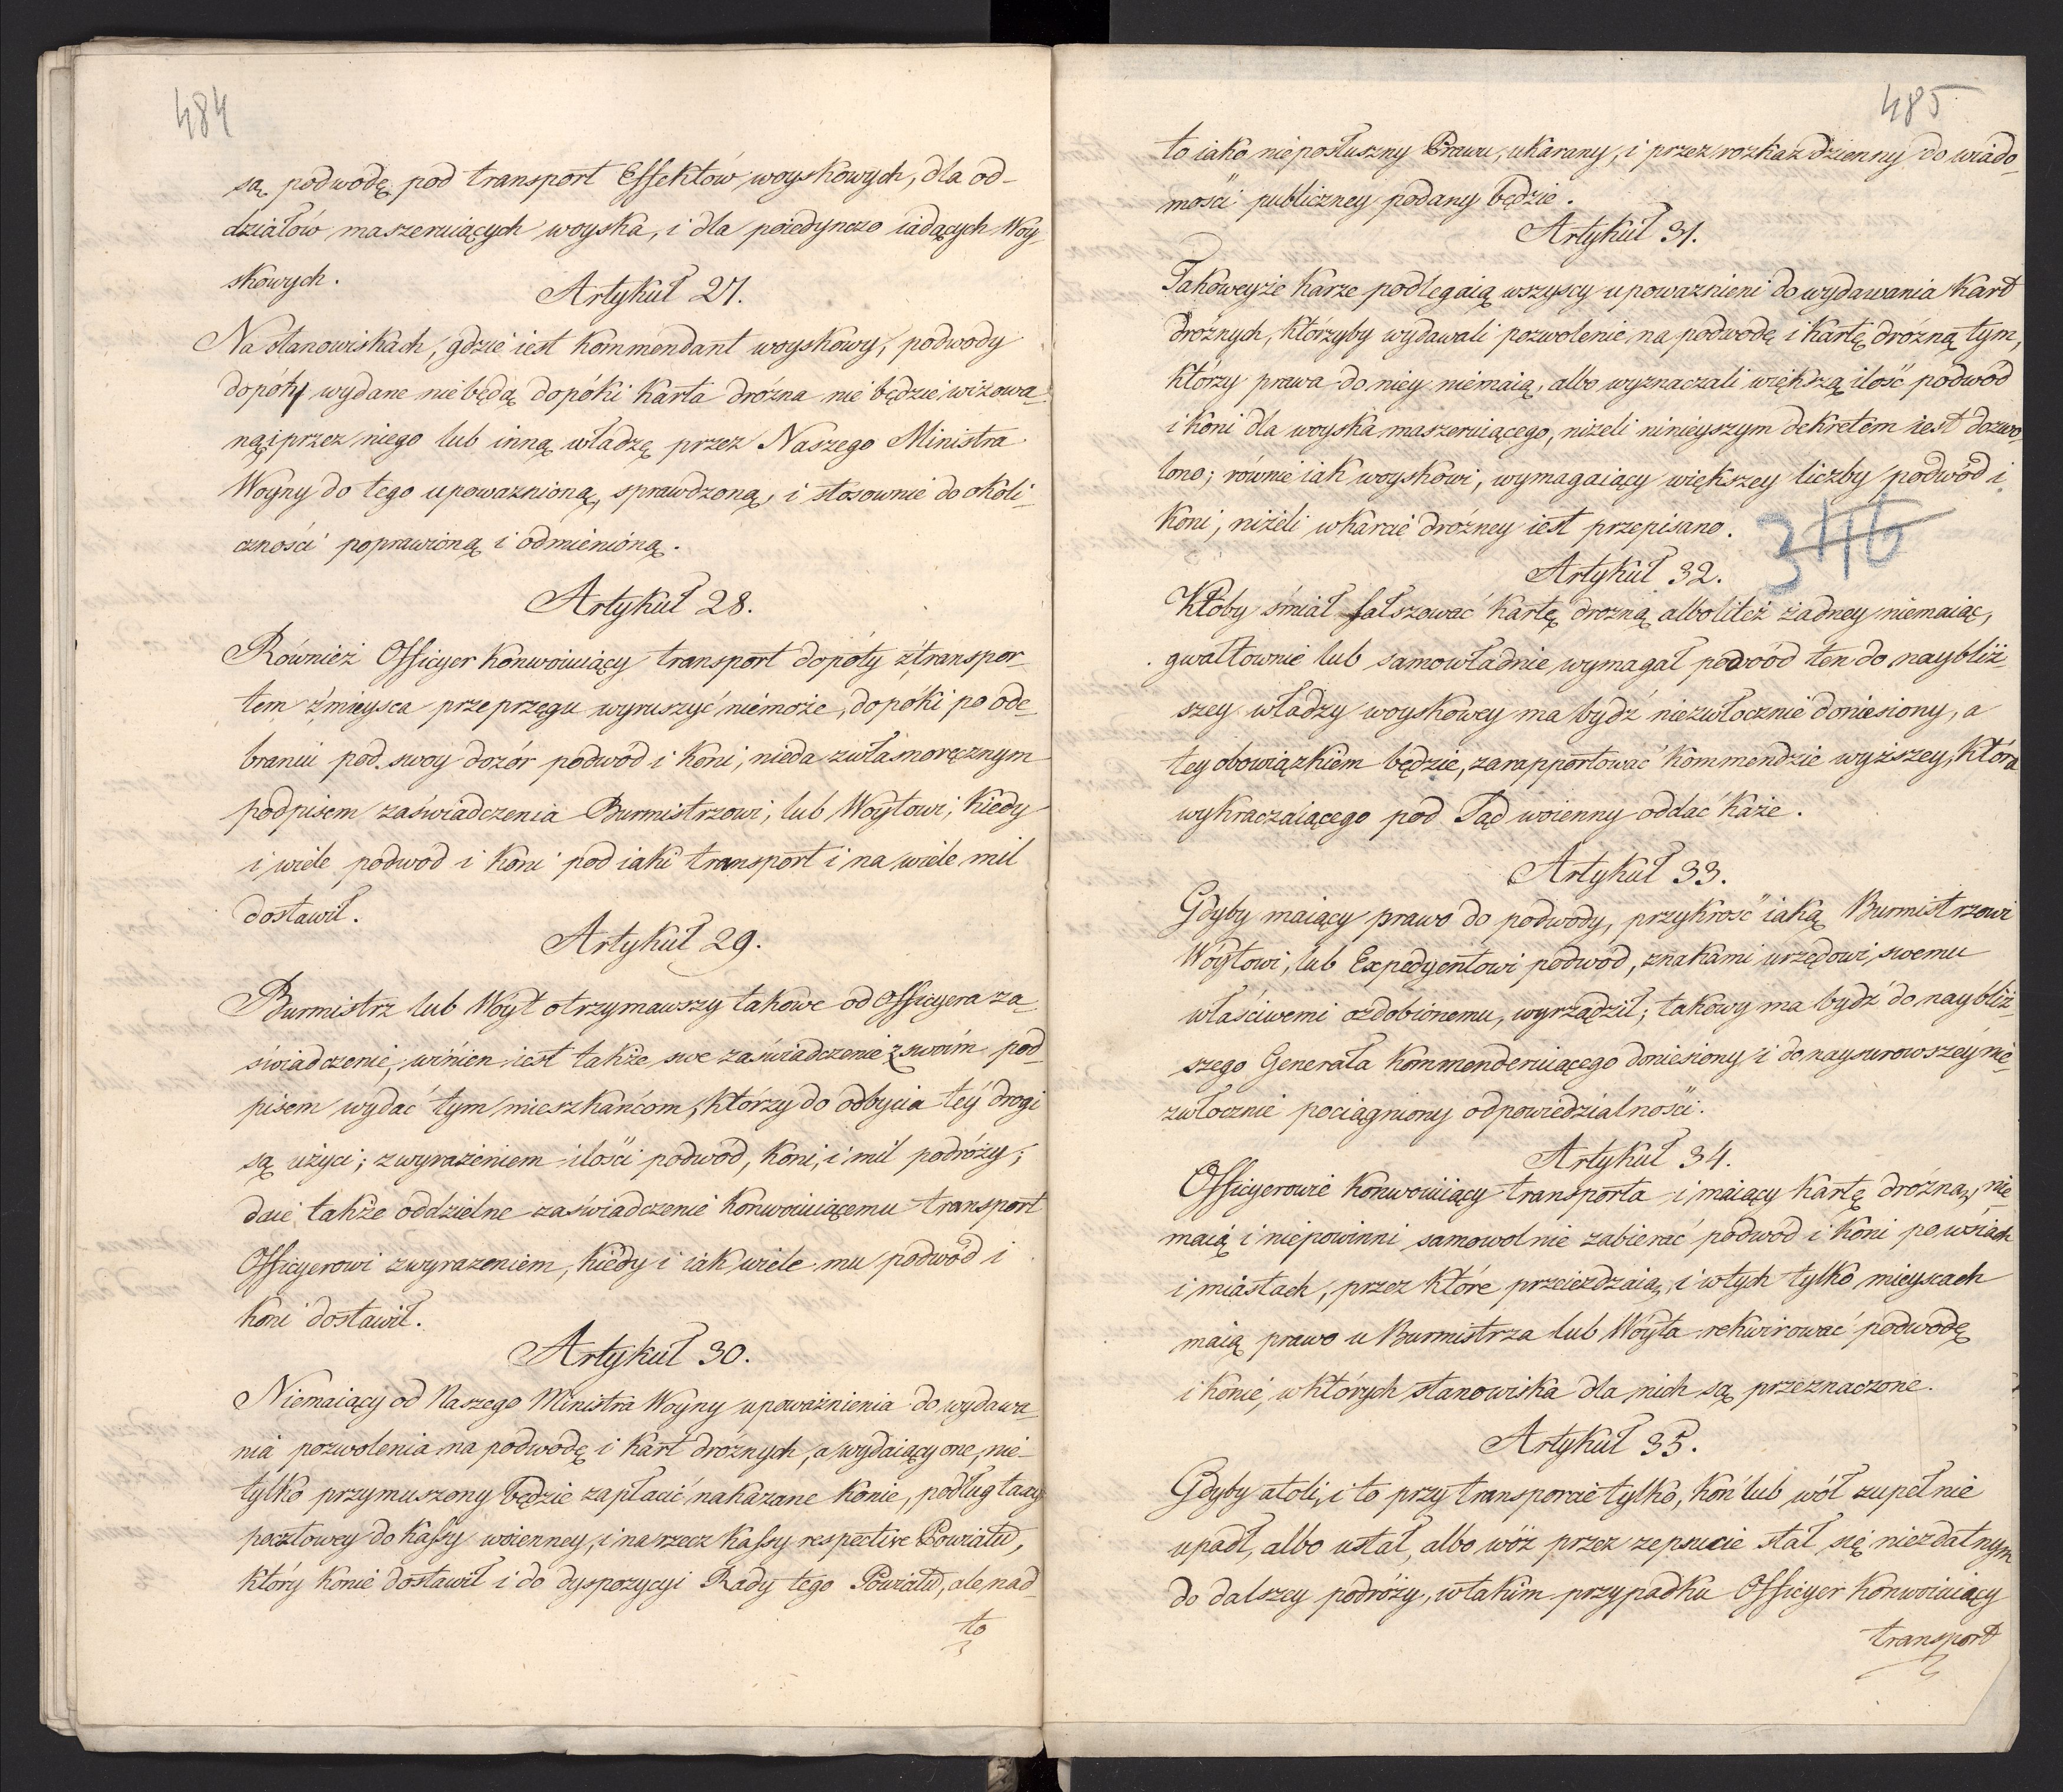 484
są podwodę pod transport Effektów woyskowych, dla od-
działów maszeruiących woyska, i dla poiedynczo iadących Woy-
skowych.
Artykuł 27.
Na stanowiskach, gdzie iest Kommendant woyskowy, podwody
dopóty wydane nie będą dopóki Karta dróżna nie będzie wizowa-
ną i przez niego lub inną władzę przez Naszego Ministra
Woyny do tego upoważnioną, sprawdzoną, i stosownie do okoli-
czności poprawioną i odmienióną.
Artykuł 28.
Równieź Officyer Konwoiuiący transport dopóty z transpor-
tem z mieysca przeprzęgu wyruszyć niemoże, dopóki po ode-
braniu pod swoy dozór podwód i Koni, nieda zwłasnoręcznym
podpisem zaświadczenia Burmistrzowi, lub Woytowi, Kiedy
i wiele podwod i Koni pod iaki transport i na wiele mil
dostawił.
Artykuł 29.
Burmistrz lub Woyt otrzymawszy takowe od Officyera za-
świadczenie, winien iest także swe zaświadczenie z swoim pod-
pisem wydać tym mieszkańcom, którzy do odbycia téy drogi
są użyci; z wyrażeniem ilości podwod, Koni, i mil podróży;
daie także oddzielne zaświadczenie Konwoiuiącemu transport
Officyerowi z wyrazeniem, kiedy i iak wiele mu podwod i
Koni dostawił.
Artykuł 30.
Niemaiący od Naszego Ministra Woyny upoważnienia do wydawa-
nia pozwolenia na podwodę i Kart dróżnych, a wydaiący one, nie-
tylko przymuszony będzie zapłacić nakazane Konie, podług taxy
pocztowey do Kassy woienney, i na rzecz Kassy respective Powiatu,
który Konie dostawił i do dyspozycyi Rady tego Powiatu, ale nad
to
485
to iako nieposłuszny Prawu, ukarany, i przez rozkaz dzienny do wiado-
mości publiczney podany będzie.
Artykuł 31.
Takoweyże Karze podlegaią wszyscy upoważnieni do wydawania Kart
dróżnych, którzyby wydawali pozwolenie na podwodę i Kartę dróżną tym,
którzy prawa do niey niemaią, albo wyznaczali większą ilość podwod
i Koni dla woyska maszeruiącego, niżeli ninieyszym dekretem iest dozwo-
lono; równie iak woyskowi, wymagaiący większey liczby podwód i
Koni, niżeli w Karcie dróżney iest przepisano.
346
Artykuł 32.
Ktoby śmiał fałszować Kartę drożną alboliteż żadney niemaiąc,
gwałtownie lub samowładnie wymagał podwód ten do naybliż-
szey władzy woyskowey ma bydź niezwłocznie doniesiony, a
tey obowiązkiem będzie, zarapportować Kommendzie wyższey, która
wykraczaiącego pod Sąd woienny oddać każe.
Artykuł 33.
Gdyby maiący prawo do podwody, przykrość iaką Burmistrzowi
Wóytowi, lub Expedyentowi podwod, znakami urzędowi swemu
właściwemi ozdobionemu, wyrządził; takowy ma bydź do naybliż-
szego Generała Kommenderuiącego doniesiony i do naysurowszéy nie-
zwłocznie pociągniony odpowiedzialności.
Artykuł 34.
Officyerowie Konwoiuiący transporta i maiący Kartę dróżną, nie-
maią i niepowinni samowolnie zabierać podwód i Koni po wsiach
i miastach, przez które przeieżdzaią, i w tych tylko mieyscach
maią prawo u Burmistrza lub Wóyta rekwirować podwodę
i Konie, w których stanowiska dla nich są przeznaczone.
Artykuł 35.
Gdyby atoli, i to przy transporcie tylko, Koń lub wół zupełnie
upadł, albo ustał, albo wóz przez zepsucie stał się niezdatnym
do dalszey podróży, w takim przypadku Officyer Konwoiuiący
transport